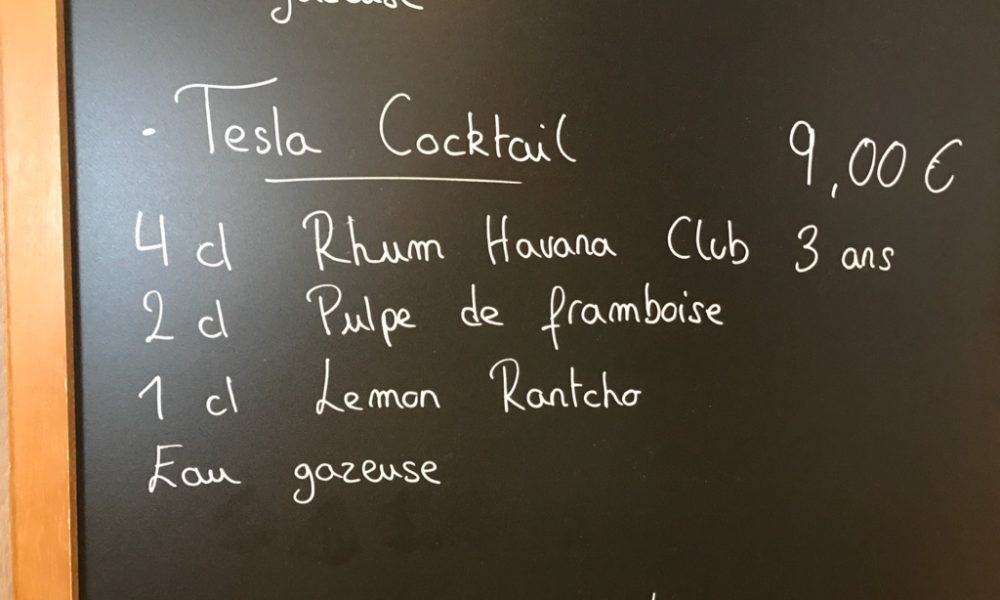 · Tesla Cocktail 9,00 €
4 cl Rhum Havana Club 3 ans
2 cl Pulpe de framboise
1 cl Lemon Rantcho
Eau gazeuse